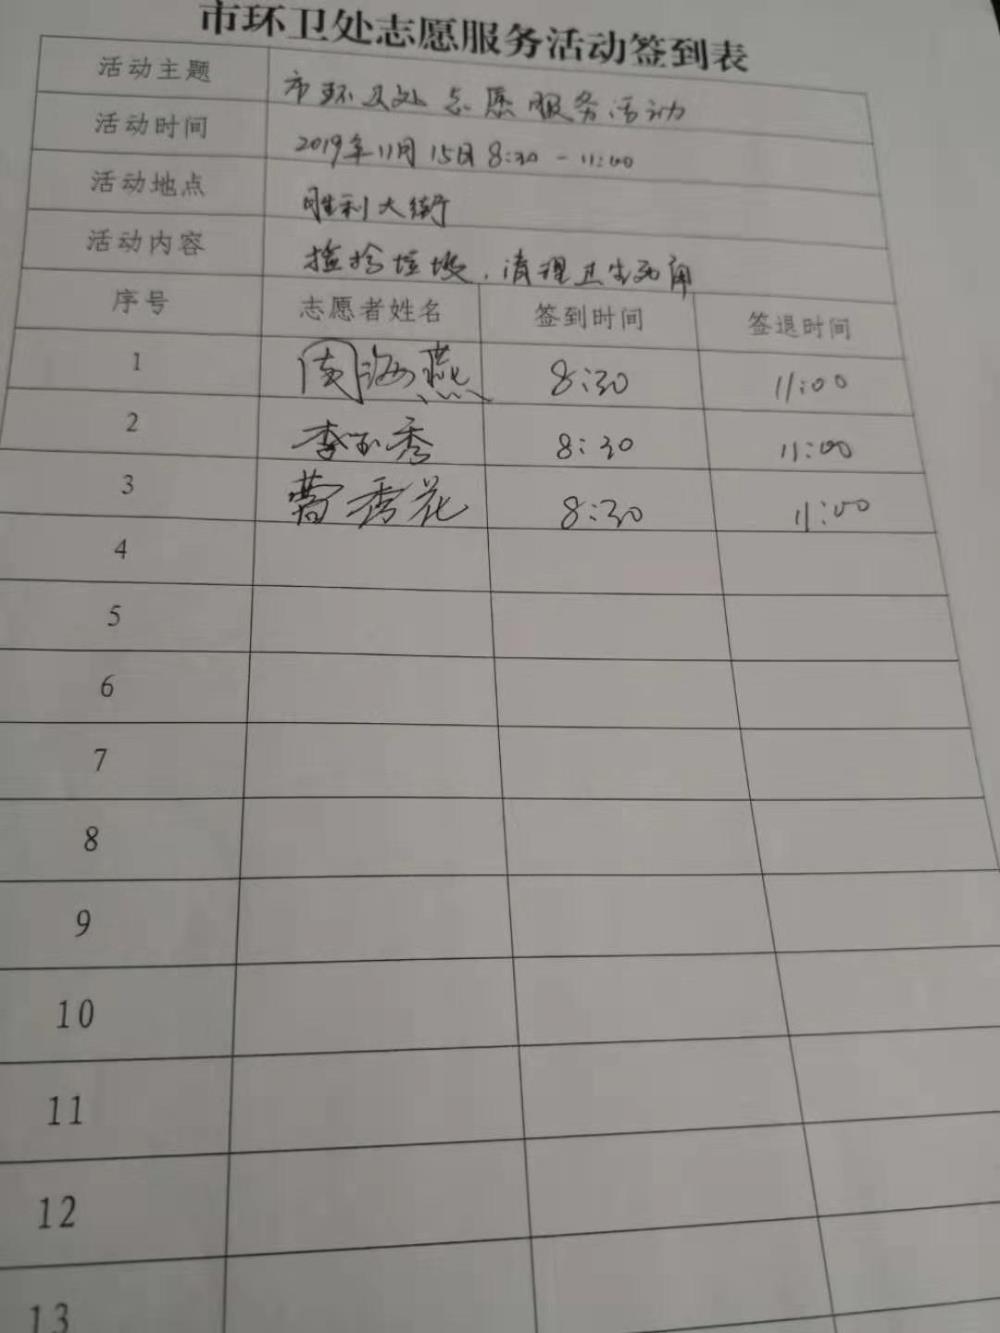 市环卫处志愿服务活动签到表
活动主题 市环卫处志愿服务活动
活动时间 2019年11月15日8:30-11:00
活动地点 胜利大街
活动内容 捡拾垃圾,清理卫生死角
序号 志愿者姓名 签到时间 签退时间
1 周海燕 8:30 11:00
2 李 秀 8:30 11:00
3 曹秀花 8:30 11:00
4
5
6
7
8
9
10
11
12
13